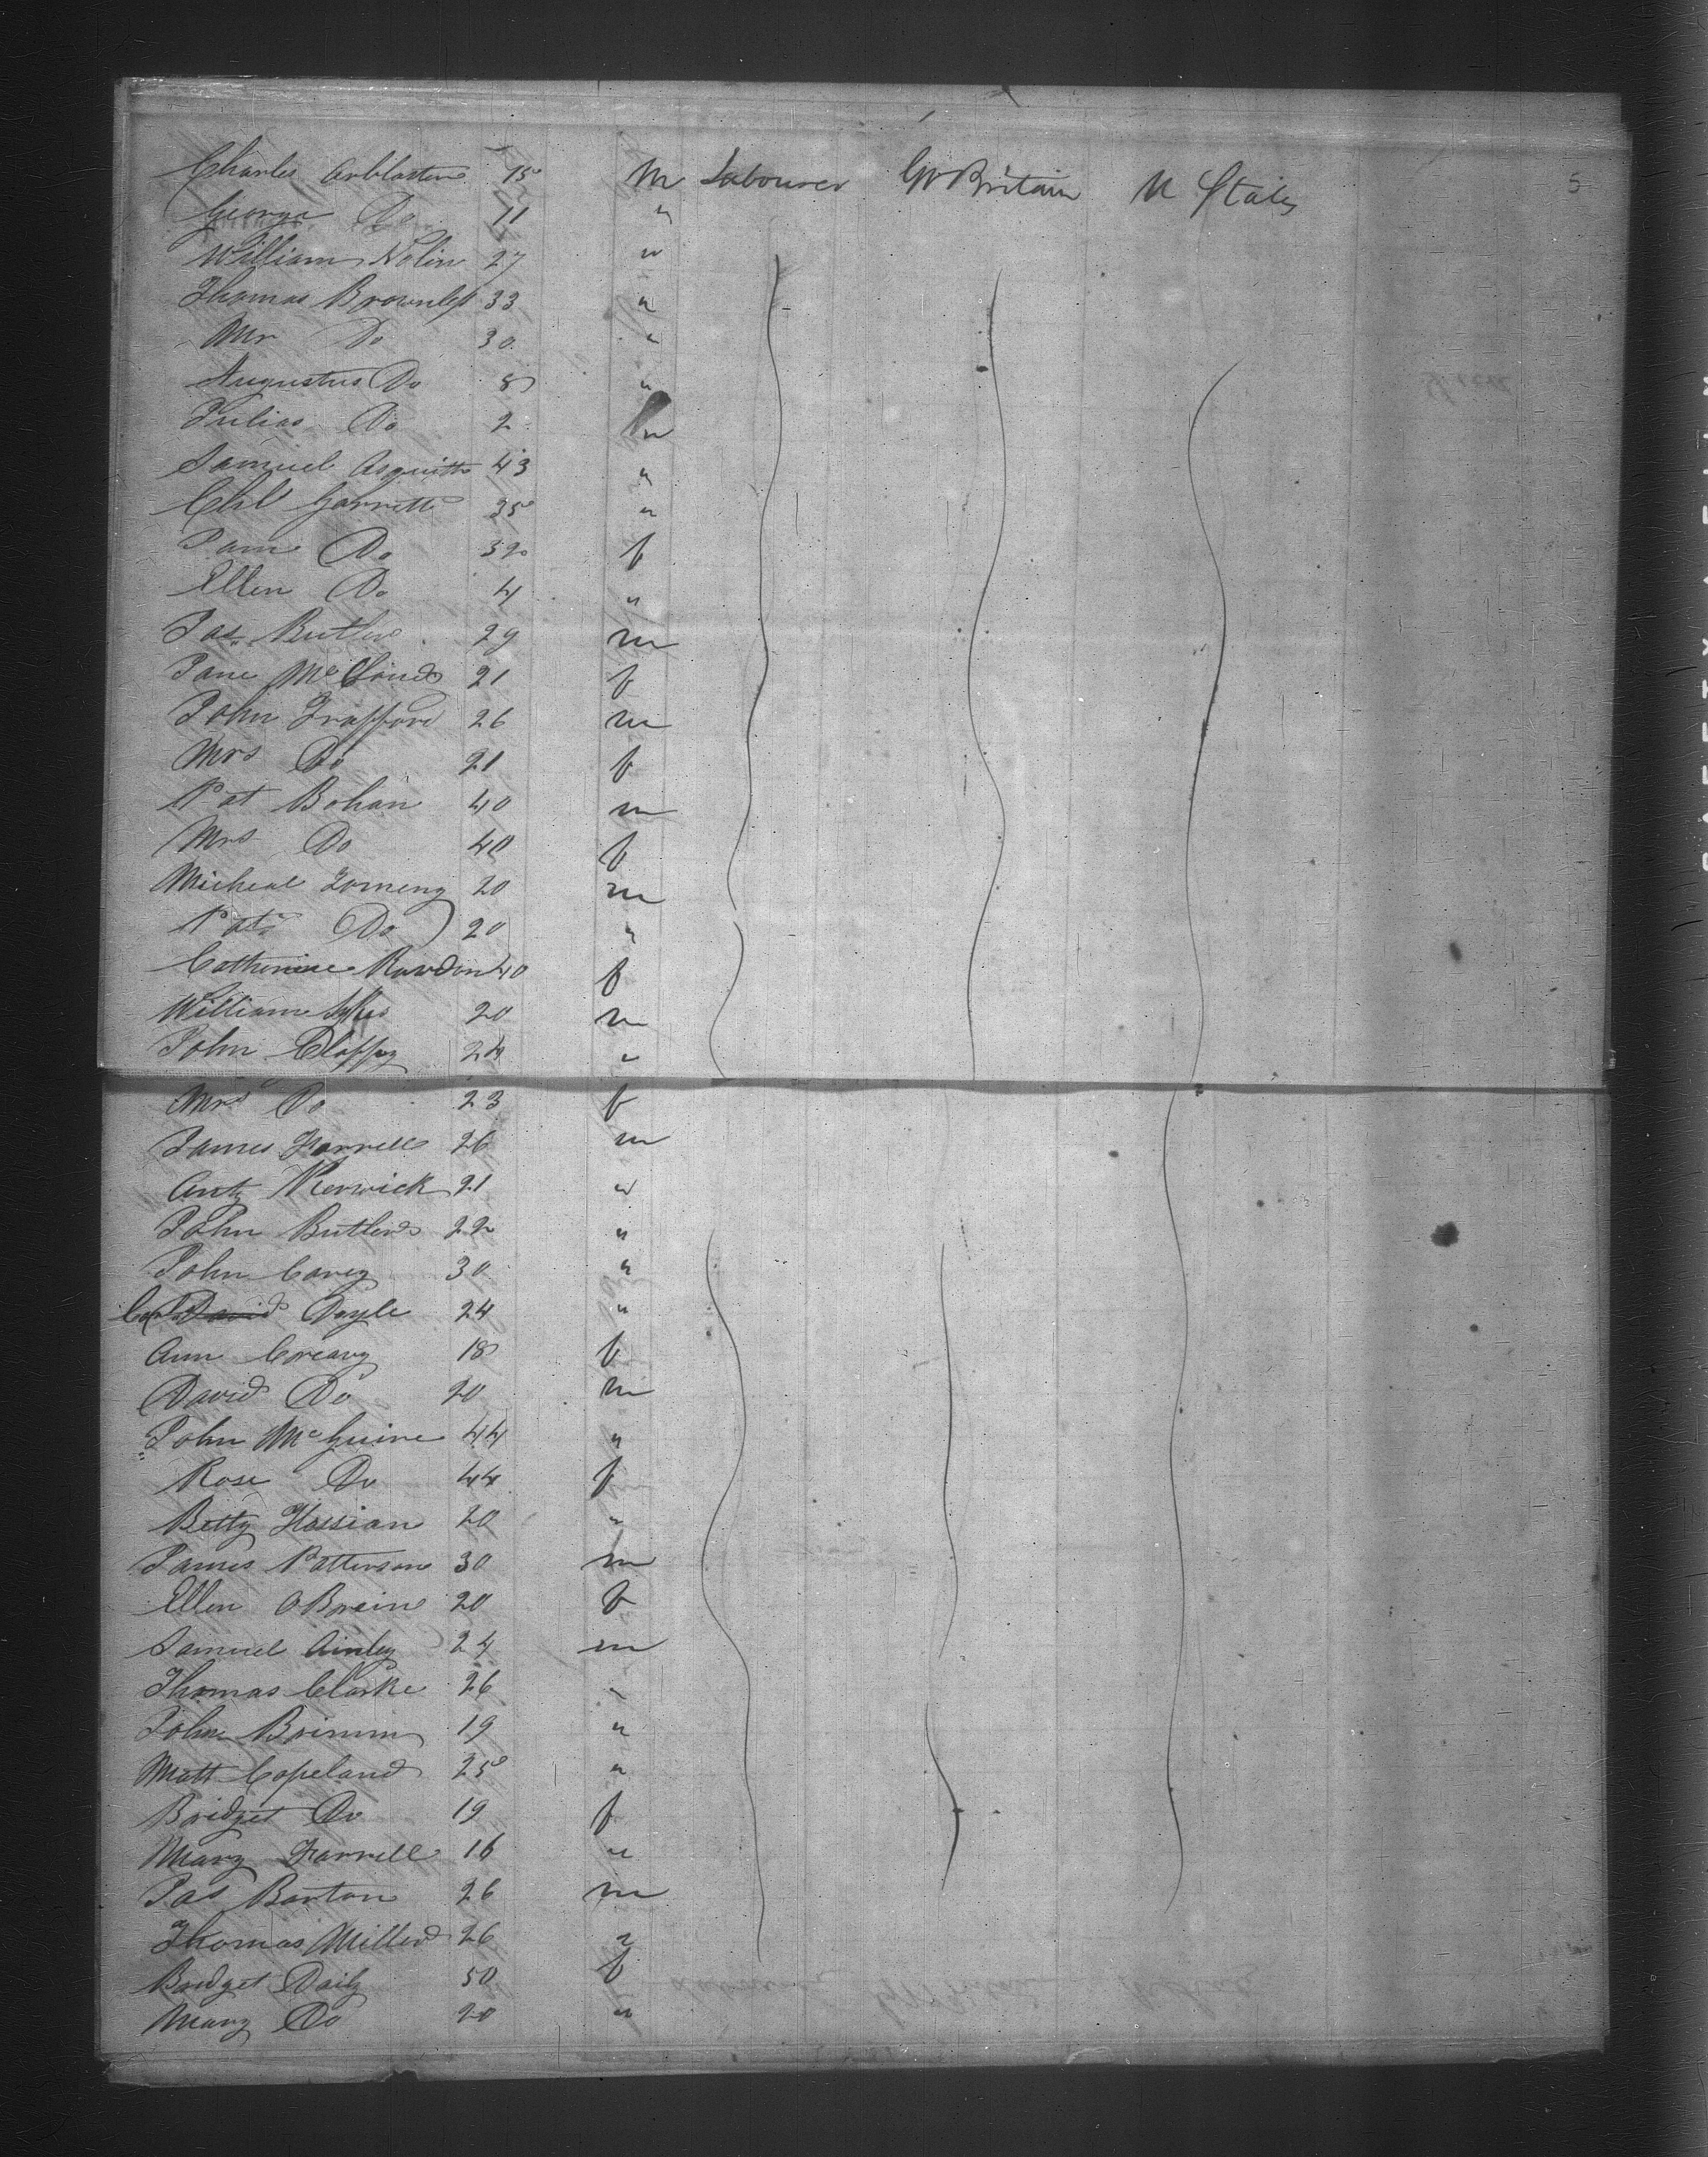 Charles Arblaster 15 M Labourer Gr Britain U States 5
George Do 11 "
William Nolin 27 "
Thomas Brownless 33 "
Mr Do 30 "
Augustus Do 8 "
Julias Do 2 m
Samuel Asquith 43 "
Chs Garrett 35 "
Jam Do 32 f
Ellen Do 4 "
Jas Butler 29 m
Jane McCloud 21 f
John Trafford 26 m
Mrs Do 21 f
Pat Bohan 40 m
Mrs Do 40 f
Micheal 20 m
Pat Do 20 "
Catherine Rawdon 40 f
William Sykes 20 m
John Claffey 24 "
Mrs Do 23 f
James Farrell 26 m
Anty Kerwick 21 "
John Butler 22 "
John Carey 30 "
David Doyle 24 "
Ann Creavy 18 f
David Do 20 m
John McGuire 44 "
Rose Do 44 f
Betty Hassian 20 "
James Patterson 30 m
Ellen O Brein 20 f
Samuel Ainley 24 m
Thomas Clarke 26 "
John Brimm 19 "
Matt Copeland 25 "
Bridget Do 19 f
Mary Farrell 16 "
Jas Barton 26 m
Thomas Miller 26 "
Bridget Daily 50 f
Mary Do 20 "